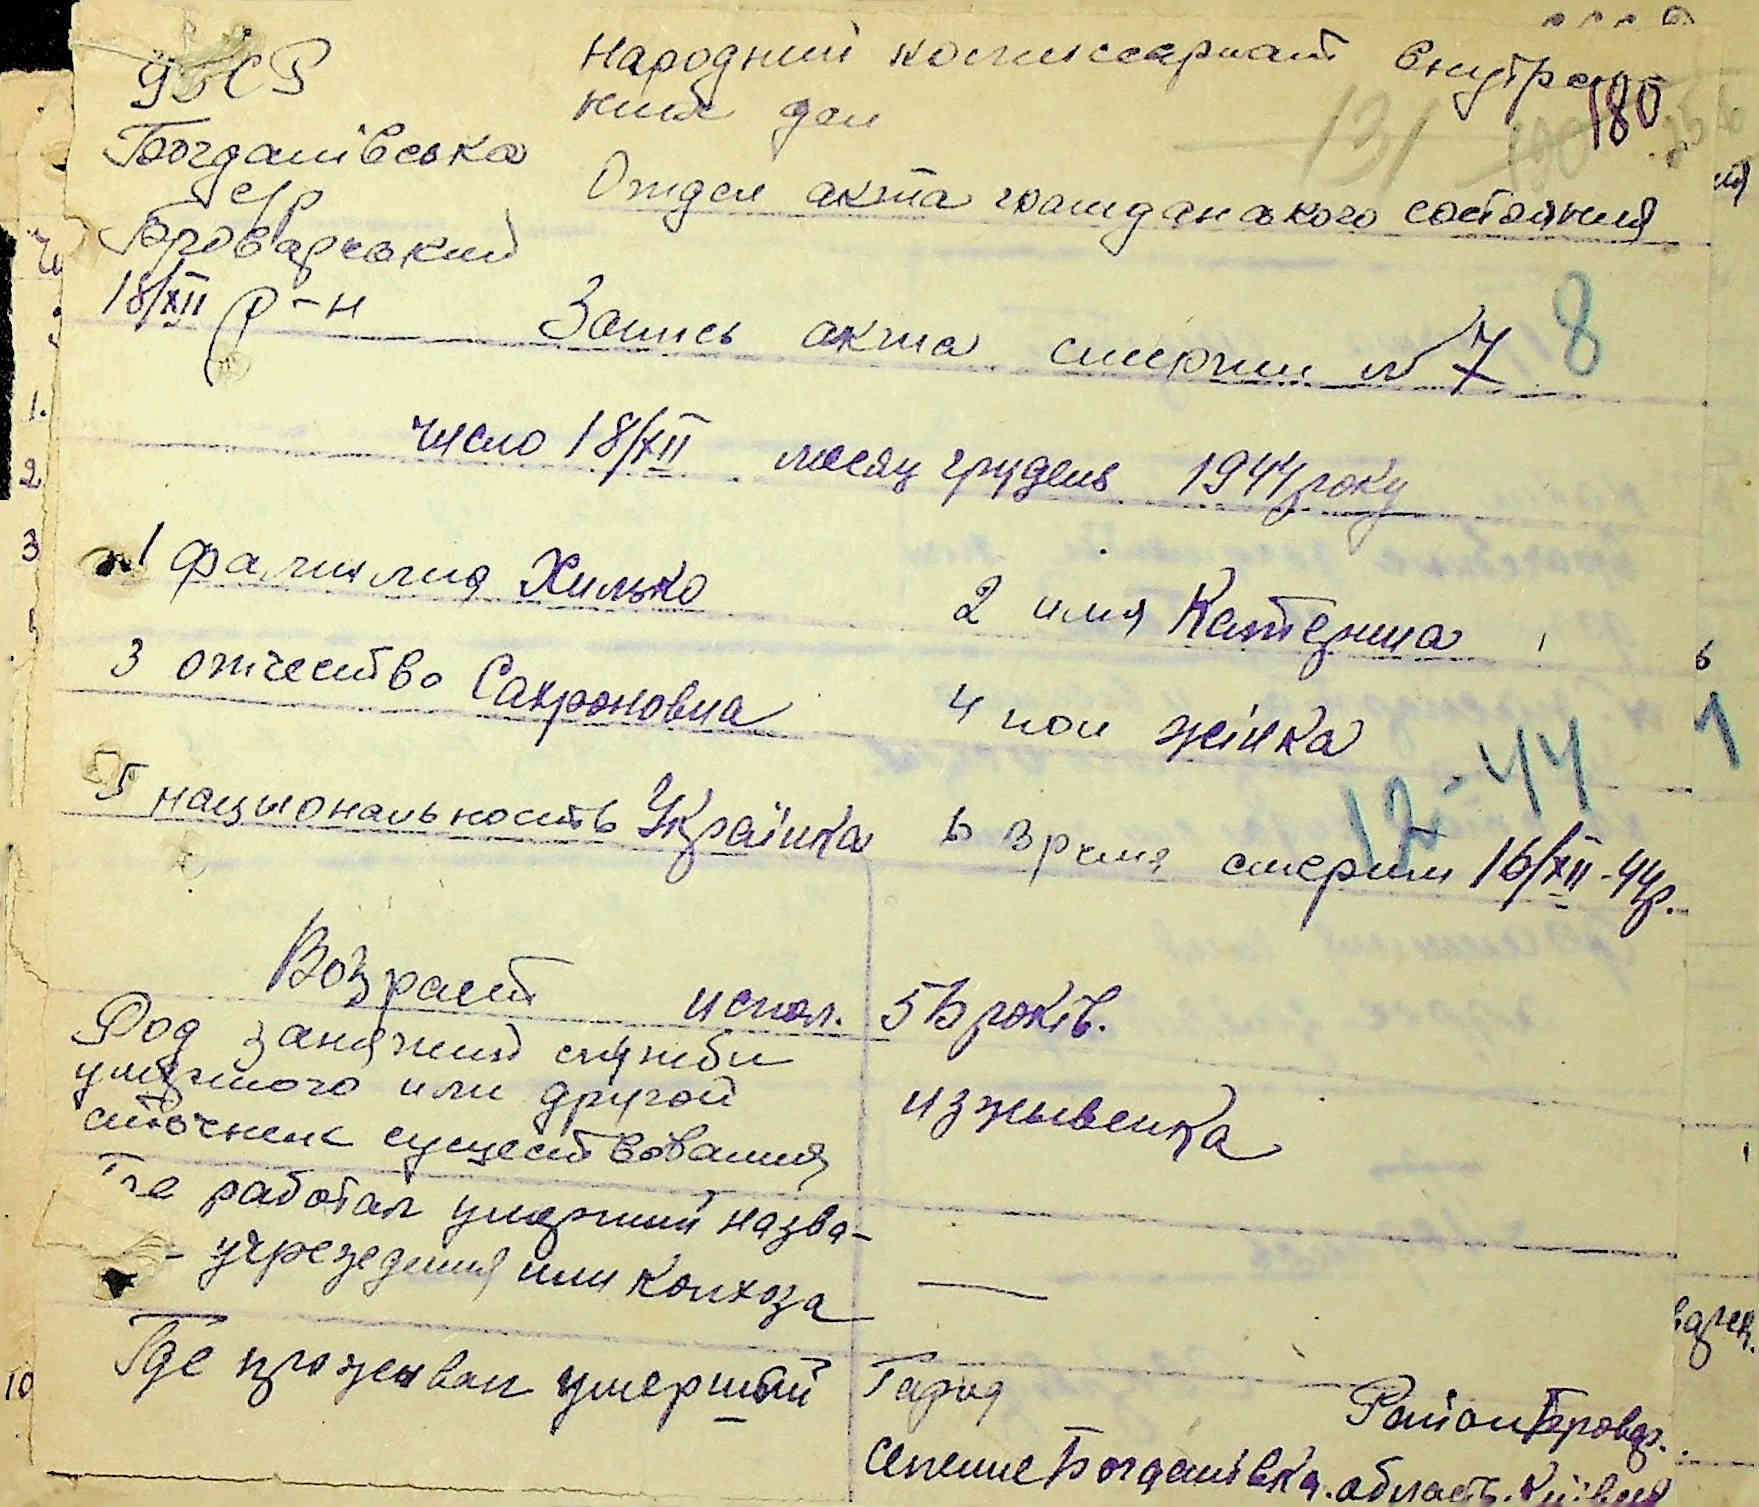 УССР
Народний комиссариат внутре
них дел
180
131
Богданівська
с/р
Отдел акта гражданского состояния
Броварський
18/XII р-н
Запись акта смерти № 7
8
число 18/XII месяц грудень 1944 року
1 фамилия Хилько
2 имя Катерина
3 отчество Сахроновна
4 пол жінка
12-44
5 национальность Українка
6 время смерти 16/XII-44р.
Возраст испол. 56 років.
Род занятий служби
умершого или другой
источнек существования
изжывенка
Где работал умерший назва-
- учреждения или колхоза
—
Где прожевал умерший
Город
Район Бровар.
Селение Богданівка. область. Київська